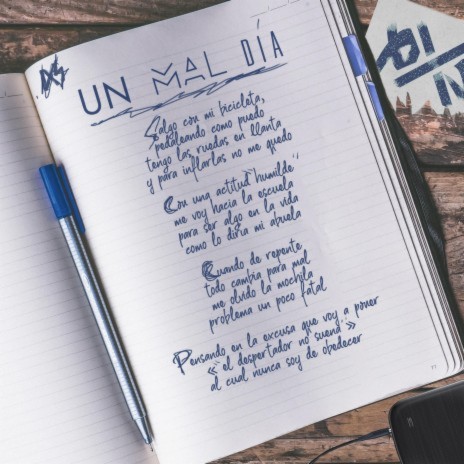 UN MAL DÍA
Salgo con mi bicicleta,
pedaleando como puedo
tengo las ruedas en llanta
y para inflarlas no me quedo
Con una actitud "humilde"
me voy hacia la escuela
para ser algo en la vida
como lo diría mi abuela
Cuando de repente
todo cambia para mal
me olvido la mochila
problema un poco fatal
Pensando en la excusa que voy a poner
"el despertador no suena"
al cual nunca soy de obedecer